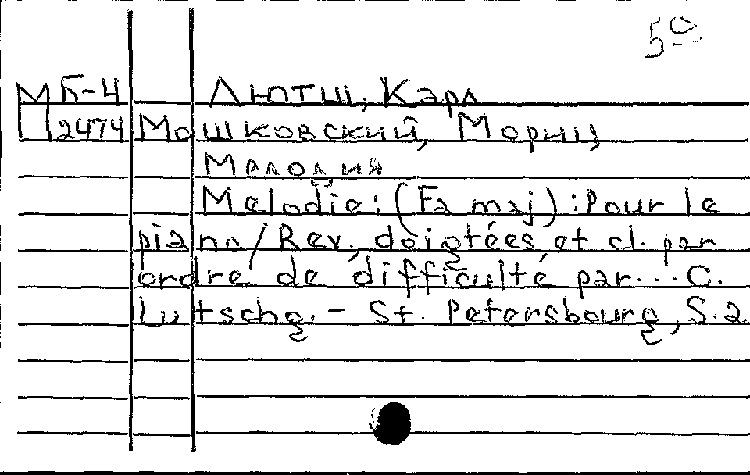 50
МБ-4 Лютш, Карл
Ц 2474 Мошковский, Мориц
Мелодия
Melodie: (Fa maj) : Pour le
piano / Rev., doigtées et cl. par
ordre de difficulté par... C.
Lutschg. - St. Petersbourg, S.a